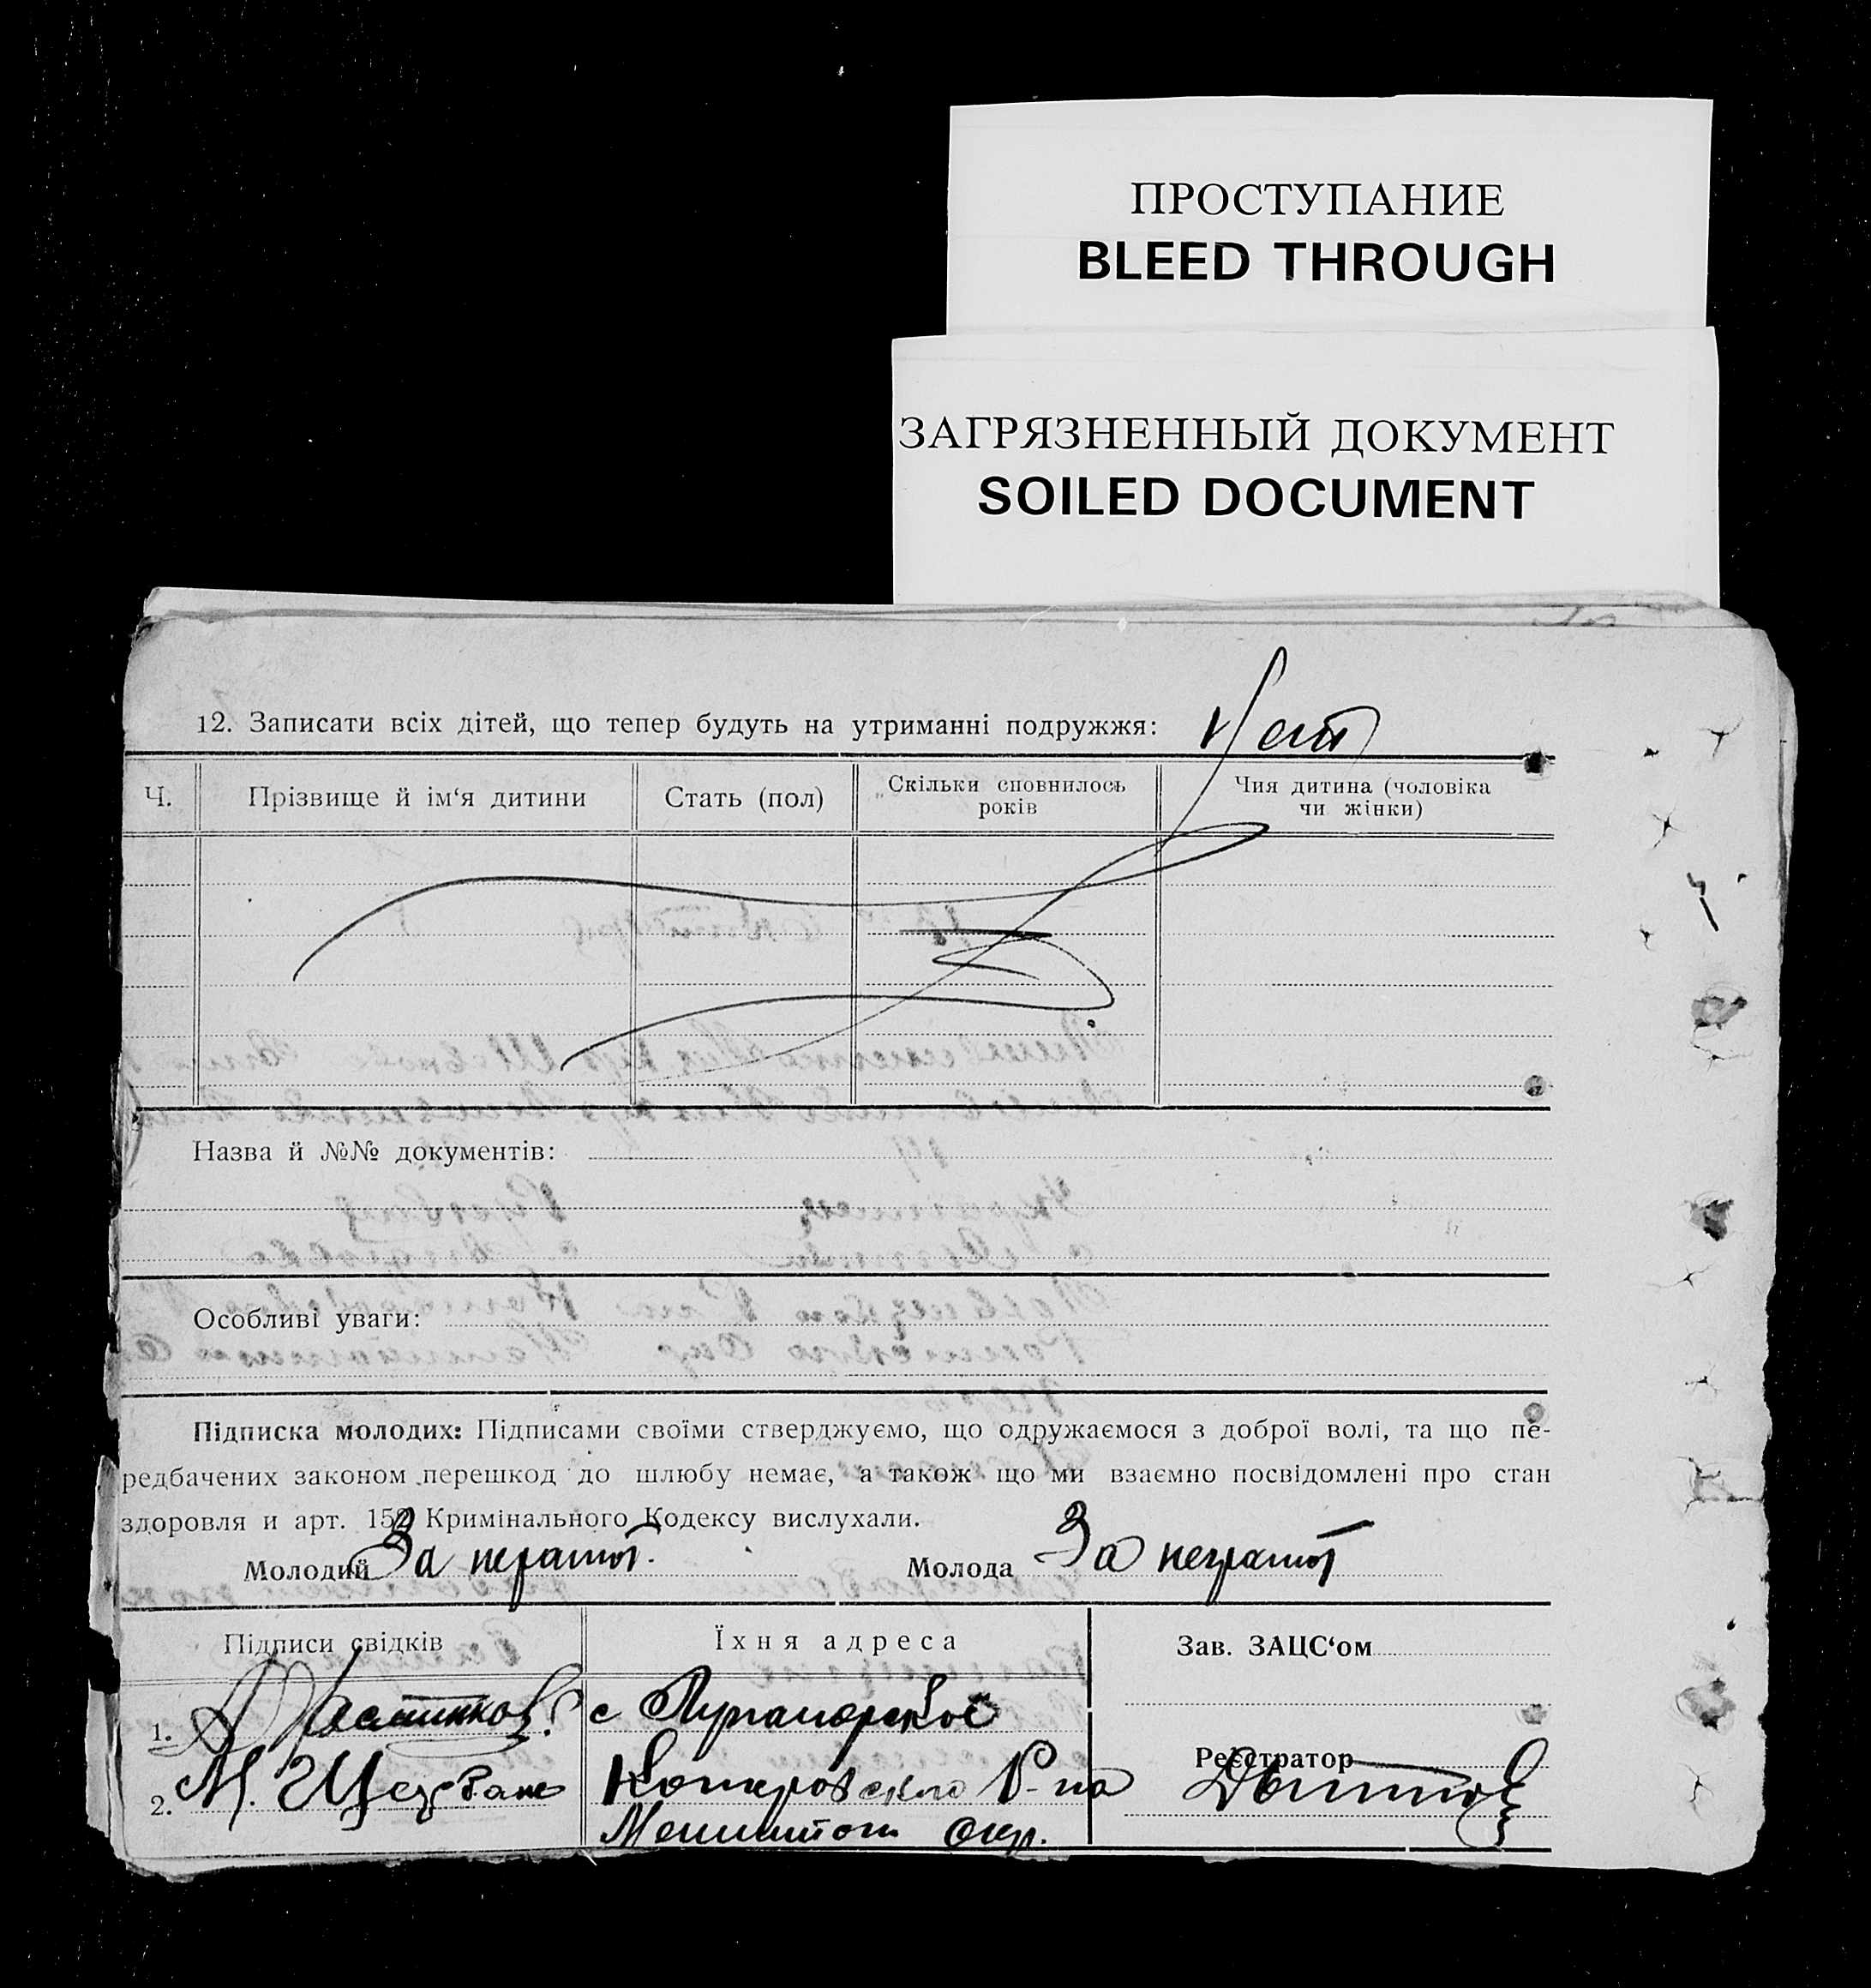 ПРОСТУПАНИЕ
BLEED THROUGH
ЗАГРЯЗНЕННЫЙ ДОКУМЕНТ
SOILED DOCUMENT
12. Записати всіх дітей, що тепер будуть на утриманні подружжя: Нет
Ч.
Прізвище й ім‘я дитини
Стать (пол)
Скільки сповнилось
років
Чия дитина (чоловіка
чи жінки)
Назва й №№ документів:
Особливі уваги:
Підписка молодих: Підписами своїми стверджуємо, що одружаємося з доброї волі, та що пе-
редбачених законом перешкод до шлюбу немає, а також що ми взаємно посвідомлені про стан
здоровля и арт. 152 Кримінального Кодексу вислухали.
Молодий За неграмот.
Молода За неграмот
Підписи свідків
Їхня адреса
Зав. ЗАЦС‘ом
1.
с
Реєстратор
2. М.
Р-на
Окр.